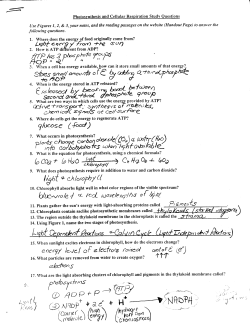 Photosynthesis and Cellular Respiration Study Questions
Use Figures 1, 2, & 3, your notes, and the reading passages on the website (Handout Page) to answer the following questions.
1. Where does the energy of food originally come from?
Light energy from the sun
2. How is ATP different from ADP?
ATP has 3 phosphate groups
ADP " 2 "
3. When a cell has energy available, how can it store small amounts of that energy?
Stores small amounts of E by adding a 2nd phosphate to ADP
4. When is the energy stored in ATP released?
E released by breaking bond between second and third phosphate group
5. What are two ways in which cells use the energy provided by ATP?
active transport, synthesis of molecules,
chemical signals
6. Where do cells get the energy to regenerate ATP?
glucose (food)
7. What occurs in photosynthesis?
plants change carbon dioxide (CO2) & water (H2O)
into carbohydrates when light available
8. What is the equation for photosynthesis, using a chemical formula?
6 CO2 + 6 H2O light chlorophyll C6H12O6 + 6O2
9. What does photosynthesis require in addition to water and carbon dioxide?
light + chlorophyll
10. Chlorophyll absorbs light well in what color regions of the visible spectrum?
blue-violet & red wavelengths of light
11. Plants gather the sun's energy with light-absorbing molecules called pigments
12. Chloroplasts contain saclike photosynthetic membranes called thylakoids
13. The region outside the thylakoid membranes in the chloroplasts is called the stroma
14. Using Figure 1, name the two stages of photosynthesis.
Light Dependent Reactions → Calvin Cycle (Light Independent Reactions)
15. When sunlight excites electrons in chlorophyll, how do the electrons change?
energy level of electrons raised
16. What particles are removed from water to create oxygen?
electrons
17. What are the light absorbing clusters of chlorophyll and pigments in the thylakoid membranes called?
photosystems
① ADP + P → ATP
② NADP+ + 2e- + H+ → NADPH